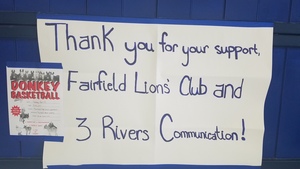 Thank you for your support,
Fairfield Lions' Club and
3 Rivers Communication!
DONKEY
BASKETBALL